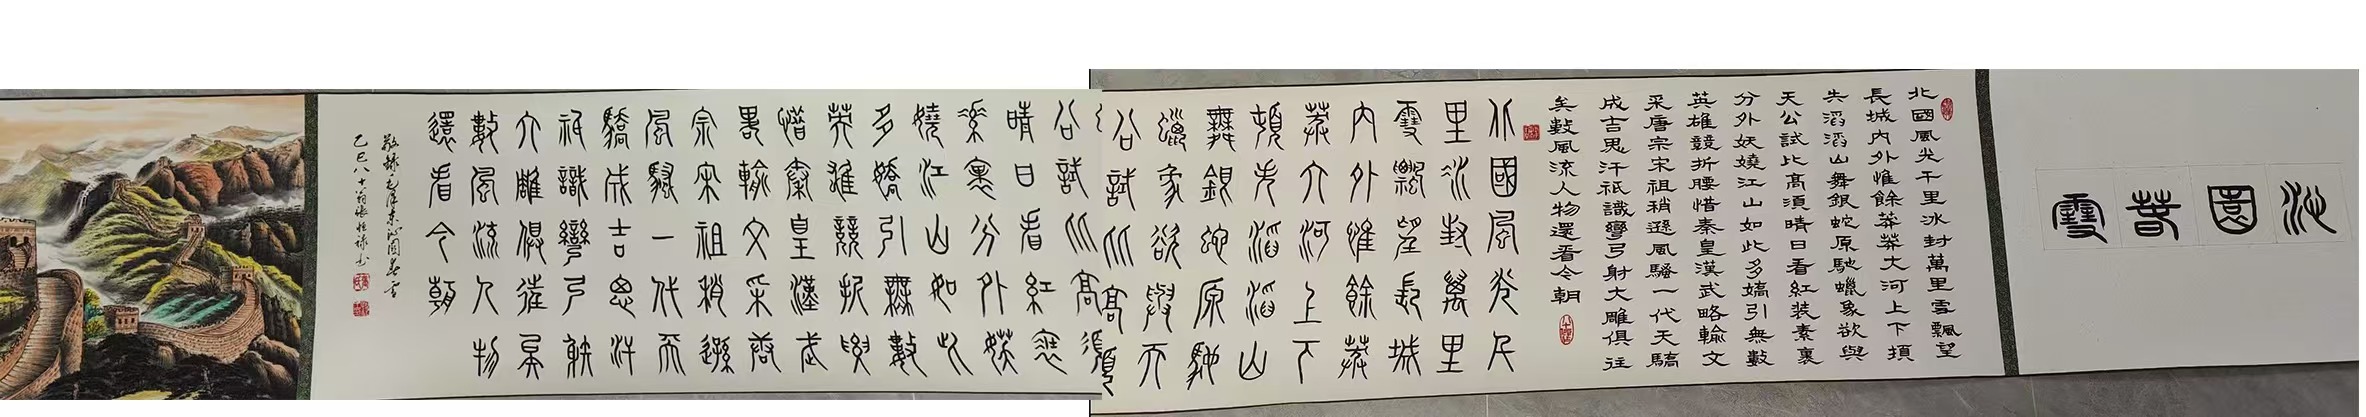 沁園春雪
北國風光千里冰封萬里雪飄望
長城内外惟餘莽莽大河上下頓
失滔滔山舞銀蛇原馳蠟象欲與
天公試比高須晴日看紅装素裏
分外妖嬈江山如此多嬌引無數
英雄競折腰惜秦皇漢武略輸文
采唐宗宋祖稍遜風騷一代天驕
成吉思汗祗識彎弓射大雕俱往
矣數風流人物還看今朝
北國風光千
里冰封萬里
雪飄望長城
内外惟餘莽
莽大河上下
頓失滔滔山
舞銀蛇原馳
蠟象欲與天
公試比高須
公試比高須
晴日看紅裝
素裹分外妖
嬈江山如此
多嬌引無數
英雄競折腰
惜秦皇漢武
略輸文采唐
宗宋祖稍遜
風騷一代天
驕成吉思汗
祗識彎弓射
大雕俱往矣
數風流人物
還看今朝
敬録毛澤東沁園春雪
乙巳八十翁張